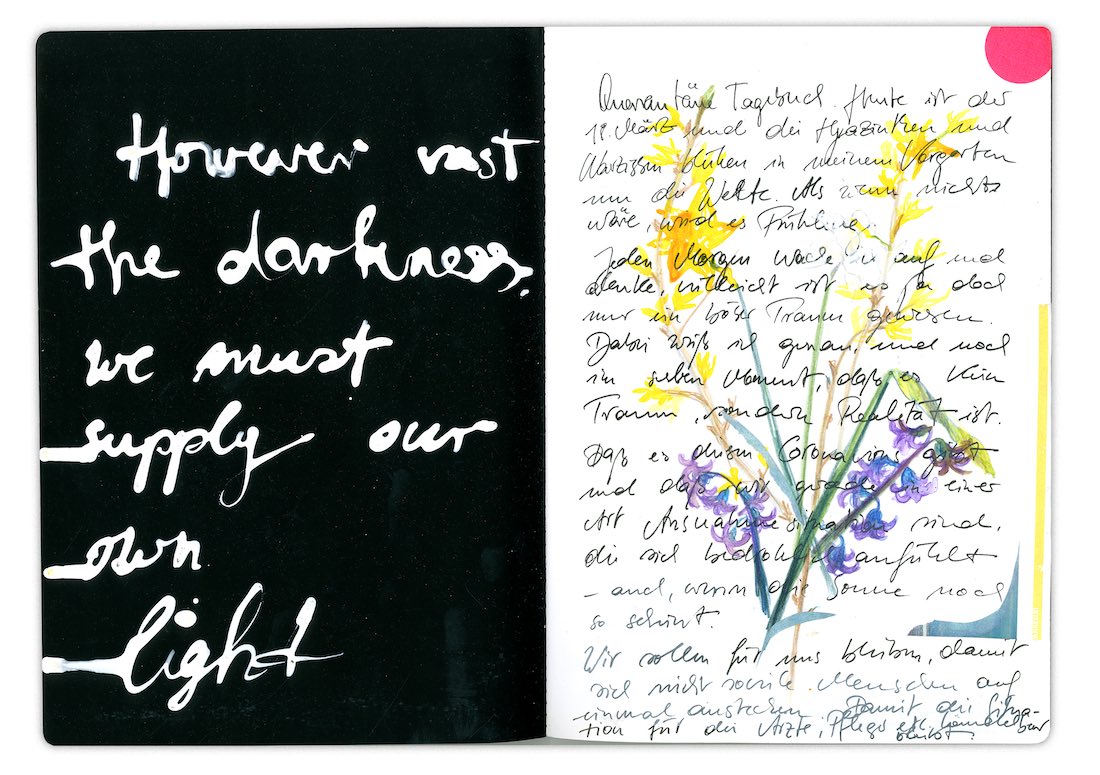 However vast
the darkness,
we must
supply our
own
light
Quarantäne Tagebuch. Heute ist der
18. März und die Hyazinthen und
Narzissen blühen in meinem Vorgarten
um die Wette. Als wenn nichts
wäre, wird es Frühling.
Jeden Morgen wache ich auf und
denke, vielleicht ist es ja doch
nur ein böser Traum gewesen.
Dabei weiß ich genau, und noch
im selben Moment, daß es kein
Traum, sondern Realität ist.
Daß es diesen Coronavirus gibt
und daß wir gerade in einer
Art Ausnahmesituation sind,
die sich bedrohlich anfühlt
– auch, wenn die Sonne noch
so scheint.
Wir sollen für uns bleiben, damit
sich nicht soviele Menschen auf
einmal anstecken. Damit die Situa-
tion für die Ärzte, Pfleger etc. handlebar
bleibt.